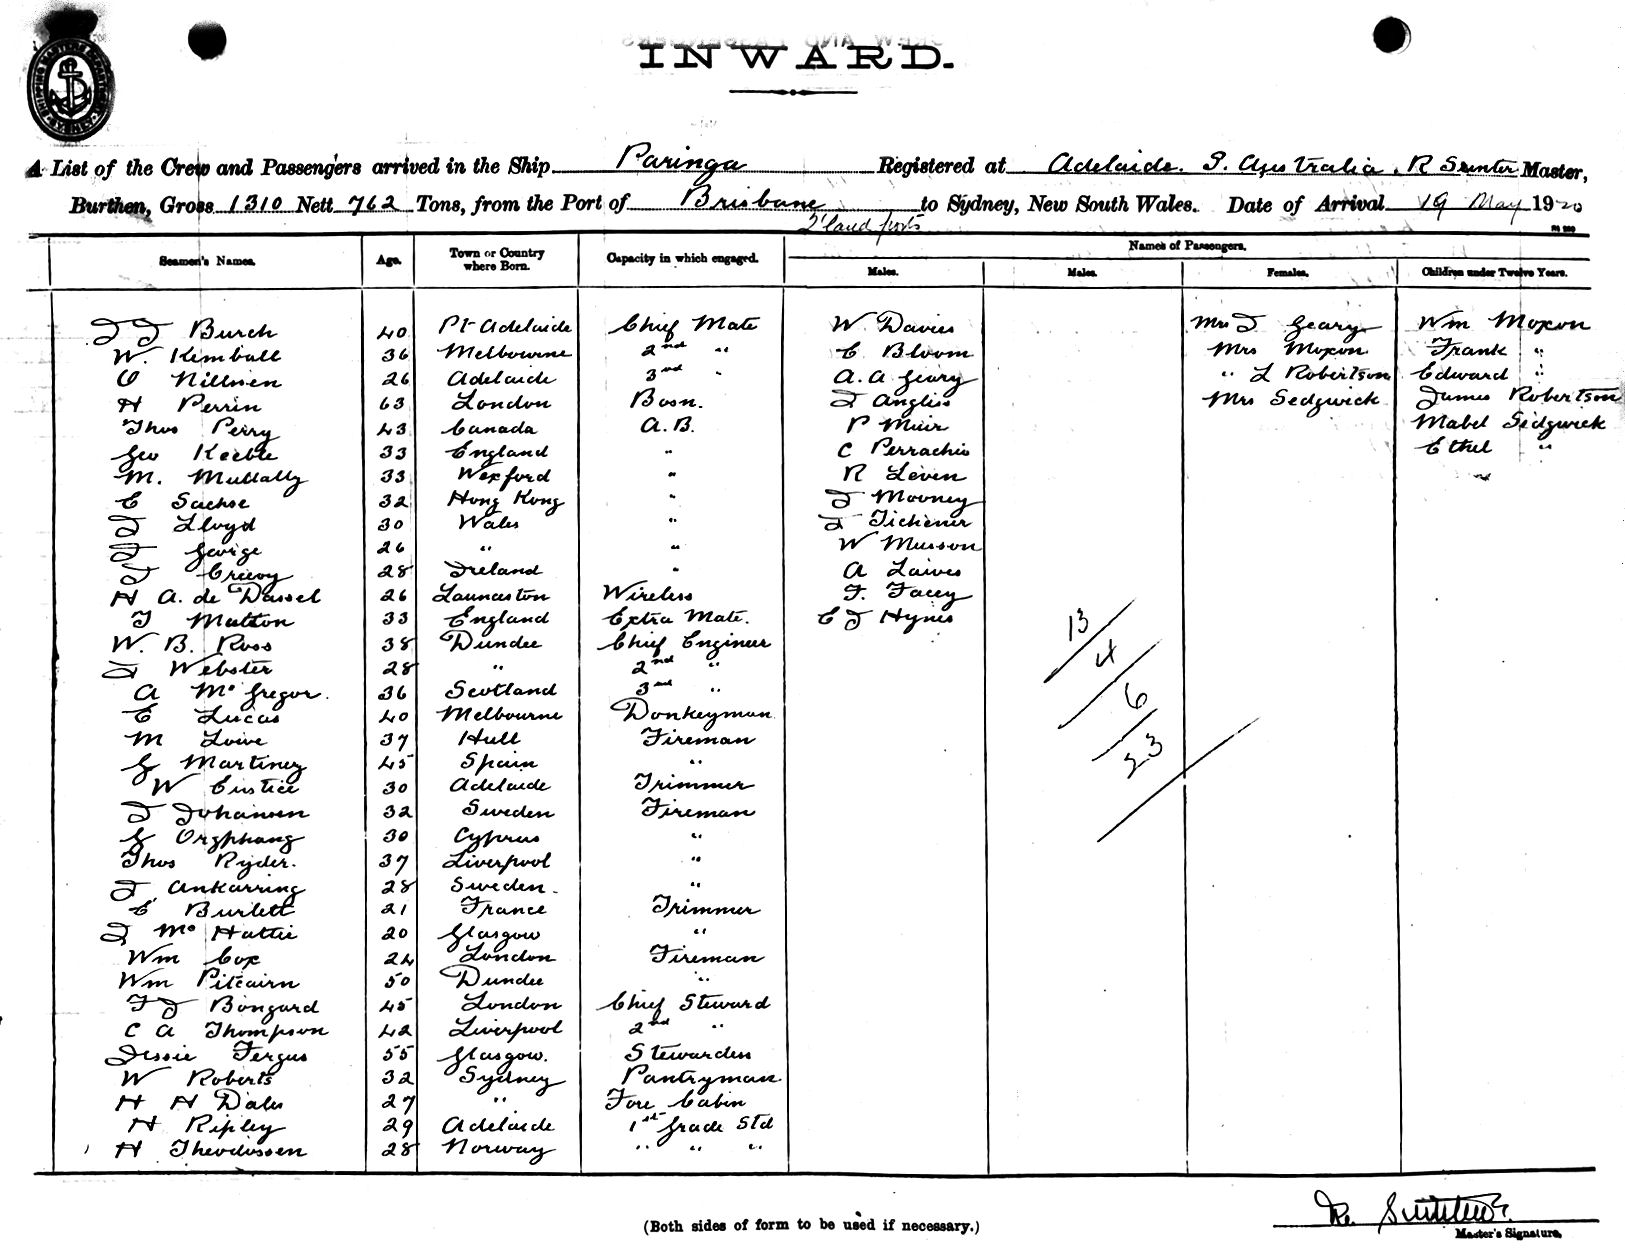 INWARD.
A List of the Crew and Passengers arrived in the Ship Paringa Registered at Adelaide. S. Australia. R Sunter Master,
Burthen, Gross 1310 Nett 762 Tons, from the Port of Brisbane to Sydney, New South Wales. Date of Arrival 19 May 1920
Q'land ports
Names of Passengers.
Seamen's Names. Age. Town or Country where Born. Capacity in which engaged. Males. Males. Females. Children under Twelve Years.
J J Burch 40 Pt Adelaide Chief Mate W Davies Mrs J Geary Wm Moxon
W. Kemball 36 Melbourne 2nd " C Bloom Mrs Moxon Frank "
O Nillsen 26 Adelaide 3rd " A. A Geary " L Robertson Edward "
H Perrin 63 London Bosn. J Angliss Mrs Sedgwick James Robertson
Thos Perry 43 Canada A.B. P Muir Mabel Sedgwick
Geo Keeble 33 England " C Perrachis Ethel "
M. Mullally 33 Wexford " R Leven
C Sachse 32 Hong Kong " J Mooney
J Lloyd 30 Wales " J Tichener
J George 26 " " W Musson
J Creevy 28 Ireland " A Laives
H A. de Dassel 26 Launceston Wireless F. Facey
T Matton 33 England Extra Mate. C J Hynes
W. B. Ross 38 Dundee Chief Engineer
J Webster 28 " 2nd "
A McGregor. 36 Scotland 3rd "
C Lucas 40 Melbourne Donkeyman
M Lowe 37 Hull Fireman
G Martinez 45 Spain "
W Eustice 30 Adelaide Trimmer
J Johansen 32 Sweden Fireman
G Orgphang 30 Cyprus "
Thos Ryder. 37 Liverpool "
J Ankarring 28 Sweden. "
C Burlett 21 France Trimmer
J McHattie 20 Glasgow "
Wm Cox 24 London Fireman
Wm Pitcairn 50 Dundee "
F J Bongard 45 London Chief Steward
C A Thompson 42 Liverpool 2nd "
Jessie Fergus 55 Glasgow. Stewardess
W Roberts 32 Sydney Pantryman
H H Dales 27 " Fore Cabin
H Ripley 29 Adelaide 1st Grade Std
H Theodossen 28 Norway " " "
13
4
6
23
(Both sides of form to be used if necessary.)
Master's Signature.